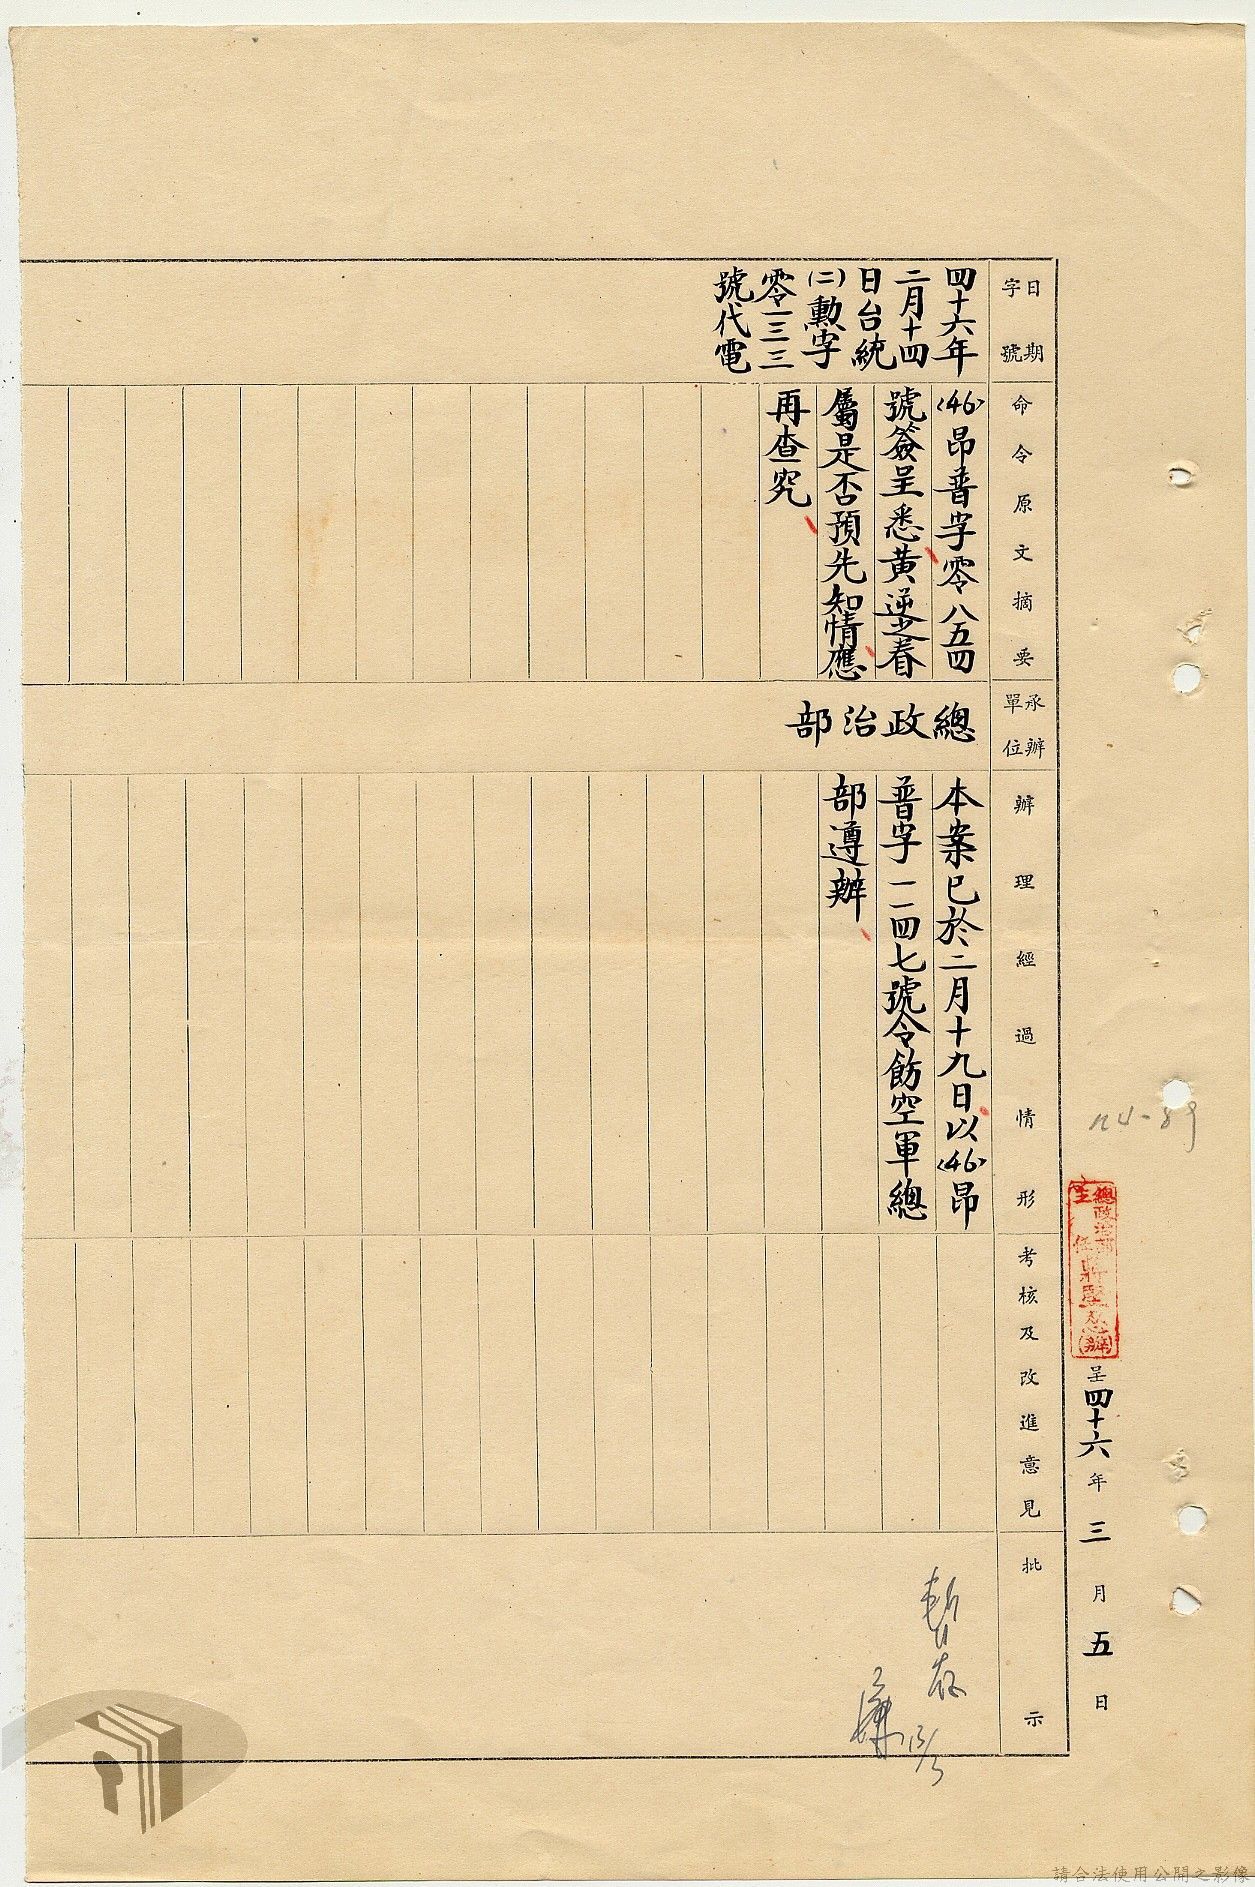 總政治部
主任蔣堅忍(辦)
呈四十六年三月五日
日期
字號
命令原文摘要
承辦
單位
辦理經過情形
考核及改進意見
批示
四十六年
二月十四
日台統
(二)勳字
零一三三
號代電
〈46〉昂普字零八五四
號簽呈悉黃逆之眷
屬是否預先知情應
再查究
總政治部
本案已於二月十九日以〈46〉昂
普字一一四七號令飭空軍總
部遵辦
暫存
請合法使用公開之影像